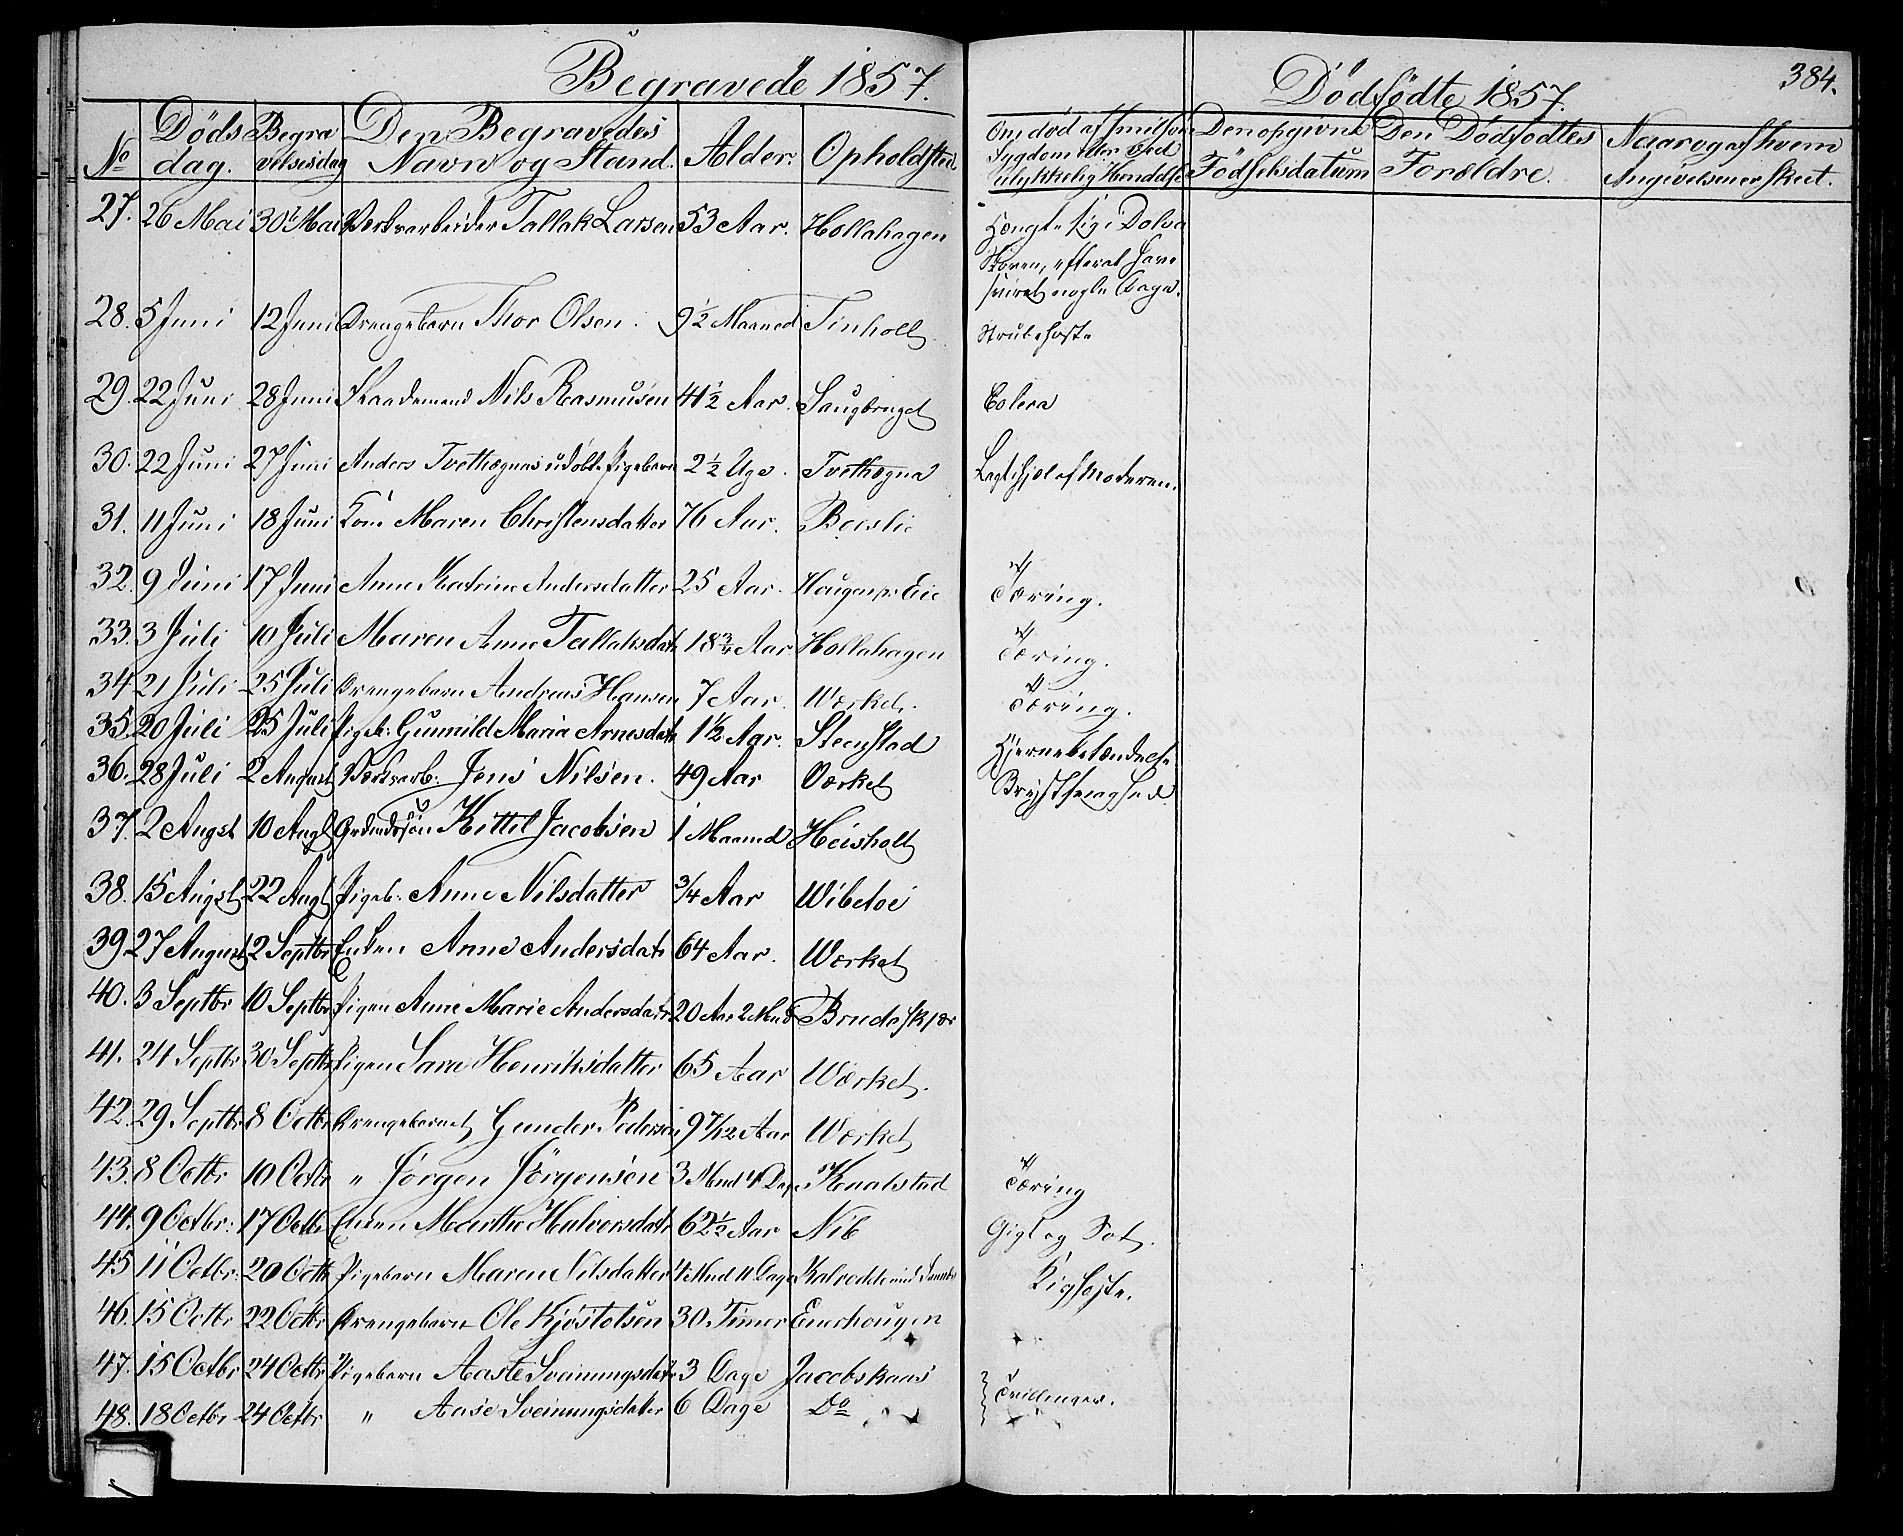 Begravede 1857.
Dödfödte 1857.
384.
No Döds dag. Begra velsesdag Den Begravedes Navn og Stand. Alder. Opholdsted Om död af smitsom Sygdom eller ved ulykkelig Hændelse Den opgivne Födselsdatum Den Dödfödtes Forældre. Naar og af hvem Angivelsen er skeet.
27. 26 Mai 30te Mai Verksarbeider Tallak Larsen 53 Aar. Hollahagen Hængte sig i Dolva
Skoven, efter at have
sviret nogle Dage.
28. 5 Juni 12 Juni Drengebarn Thor Olsen. 9½ Maaned Tinholt Strubehoste
29. 22 Juni 28 Juni Nils Rasmusen 41½ Aar. Saugbruget Colera
30. 22 Juni 27 Juni Anders Tvethognas udöbte Pigebarn 2½ Uge. Tvethogna Lagt ihjel af Moderen.
31. 11 Juni 18 Juni Kone Maren Christensdatter 76 Aar. Boeslie
32. 9 Juni 17 Juni Anne Katrine Andersdatter 25 Aar. Haugen pr Eie Tæring.
33. 3 Juli 10 Juli Maren Anne Tallaksdatr 18¾ Aar Hollahagen Tæring.
34. 21 Juli 25 Juli Drengebarn Andreas Hansen 7 Aar. Værket. Tæring.
35. 20 Juli 25 Juli Pigeb: Gunnild Maria Arnesdatr 1½ Aar. Steenstad Hjernebetændelse
36. 28 Juli 2 August Verksarb. Jens Nilsen. 49 Aar Værket Brystsvaghed
37. 2 Augst 10 Augt Kittil Jacobsen 1 Maaned Heisholt
38. 15 Augst 22 Augt Pigeb: Anne Nilsdatter ¾ Aar Wibetoe
39. 27 August 2 Septbr Enken Anne Andersdatr 64 Aar. Værket
40. 3 Septbr 10 Septbr Pigen Anne Marie Andersdatr 20 Aar 2 Mnd Brudeskjær
41. 24 Septbr 30 Septbr Pigen Sara Henriksdatter 65 Aar Værket.
42. 29 Septbr 8 Octbr Drengebarnet Gunder Pedersen 9 7/12 Aar Værket
43. 8 Octbr 10 Octbr " Jörgen Jörgensen 3 Mnd 4 Dage Knalstad Tæring
44. 9 Octbr: 17 Octbr Enken Marthe Halvorsdatr 62½ Aar Nib Gigt og Sot.
45 11 Octbr: 20 Octbr Pigebarn Maren Nilsdatter 4 Mnd 11 Dage Kalrodde Kighoste.
46. 15 Octbr 22 Octbr Drengebarn Ole Kjöstolsen 30 Timer Enerhougen
47. 15 Octbr 24 Octbr Pigebarn Aaste Sveinungsdatr 3 Dage Jacobskaas } Tvillinger.
48. 18 Octbr 24 Octbr " Aase Sveinungsdatter 6 Dage Do